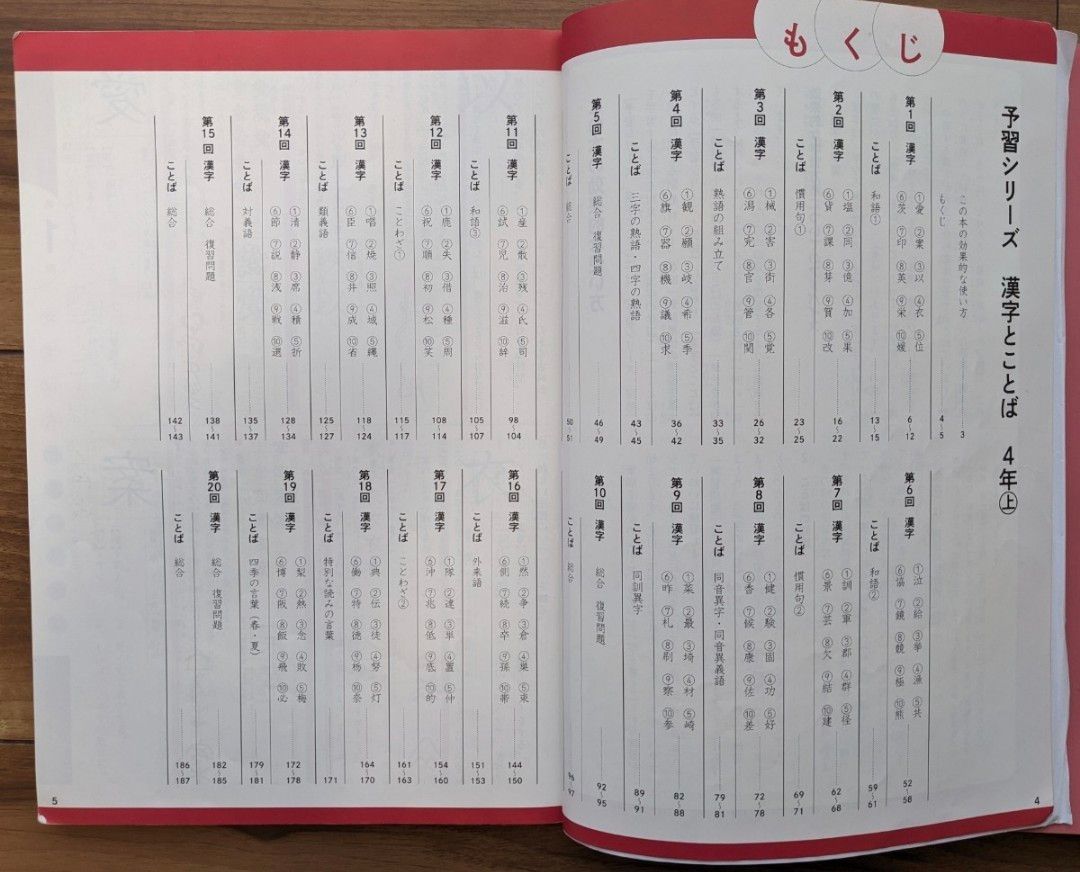 もくじ
予習シリーズ 漢字とことば 4年㊤
この本の効果的な使い方 3
もくじ 4〜5
第1回 漢字 ①愛 ②案 ③以 ④衣 ⑤位
⑥茨 ⑦印 ⑧英 ⑨栄 ⑩媛 6〜12
ことば 和語① 13〜15
第2回 漢字 ①塩 ②岡 ③億 ④加 ⑤果
⑥貨 ⑦課 ⑧芽 ⑨賀 ⑩改 16〜22
ことば 慣用句① 23〜25
第3回 漢字 ①械 ②害 ③街 ④各 ⑤覚
⑥潟 ⑦完 ⑧官 ⑨管 ⑩関 26〜32
ことば 熟語の組み立て 33〜35
第4回 漢字 ①観 ②願 ③岐 ④希 ⑤季
⑥旗 ⑦器 ⑧機 ⑨議 ⑩求 36〜42
ことば 三字の熟語・四字の熟語 43〜45
第5回 漢字 総合 復習問題 46〜49
ことば 総合 50〜51
第6回 漢字 ①泣 ②給 ③挙 ④漁 ⑤共
⑥協 ⑦鏡 ⑧競 ⑨極 ⑩熊 52〜58
ことば 和語② 59〜61
第7回 漢字 ①訓 ②軍 ③郡 ④群 ⑤径
⑥景 ⑦芸 ⑧欠 ⑨結 ⑩建 62〜68
ことば 慣用句② 69〜71
第8回 漢字 ①健 ②験 ③固 ④功 ⑤好
⑥香 ⑦候 ⑧康 ⑨佐 ⑩差 72〜78
ことば 同音異字・同音異義語 79〜81
第9回 漢字 ①菜 ②最 ③埼 ④材 ⑤崎
⑥昨 ⑦札 ⑧刷 ⑨察 ⑩参 82〜88
ことば 同訓異字 89〜91
第10回 漢字 総合 復習問題 92〜95
ことば 総合 96〜97
4
第11回 漢字 ①産 ②散 ③残 ④氏 ⑤司
⑥試 ⑦児 ⑧治 ⑨滋 ⑩辞 98〜104
ことば 和語③ 105〜107
第12回 漢字 ①鹿 ②失 ③借 ④種 ⑤周
⑥祝 ⑦順 ⑧初 ⑨松 ⑩笑 108〜114
ことば ことわざ① 115〜117
第13回 漢字 ①唱 ②焼 ③照 ④城 ⑤縄
⑥臣 ⑦信 ⑧井 ⑨成 ⑩省 118〜124
ことば 類義語 125〜127
第14回 漢字 ①清 ②静 ③席 ④積 ⑤折
⑥節 ⑦説 ⑧浅 ⑨戦 ⑩選 128〜134
ことば 対義語 135〜137
第15回 漢字 総合 復習問題 138〜141
ことば 総合 142〜143
第16回 漢字 ①然 ②争 ③倉 ④巣 ⑤束
⑥側 ⑦続 ⑧卒 ⑨孫 ⑩帯 144〜150
ことば 外来語 151〜153
第17回 漢字 ①隊 ②達 ③単 ④置 ⑤仲
⑥沖 ⑦兆 ⑧低 ⑨底 ⑩的 154〜160
ことば ことわざ② 161〜163
第18回 漢字 ①典 ②伝 ③徒 ④努 ⑤灯
⑥働 ⑦特 ⑧徳 ⑨栃 ⑩奈 164〜170
ことば 特別な読みの言葉 171
第19回 漢字 ①梨 ②熱 ③念 ④敗 ⑤梅
⑥博 ⑦阪 ⑧飯 ⑨飛 ⑩必 172〜178
ことば 四季の言葉(春・夏) 179〜181
第20回 漢字 総合 復習問題 182〜185
ことば 総合 186〜187
5